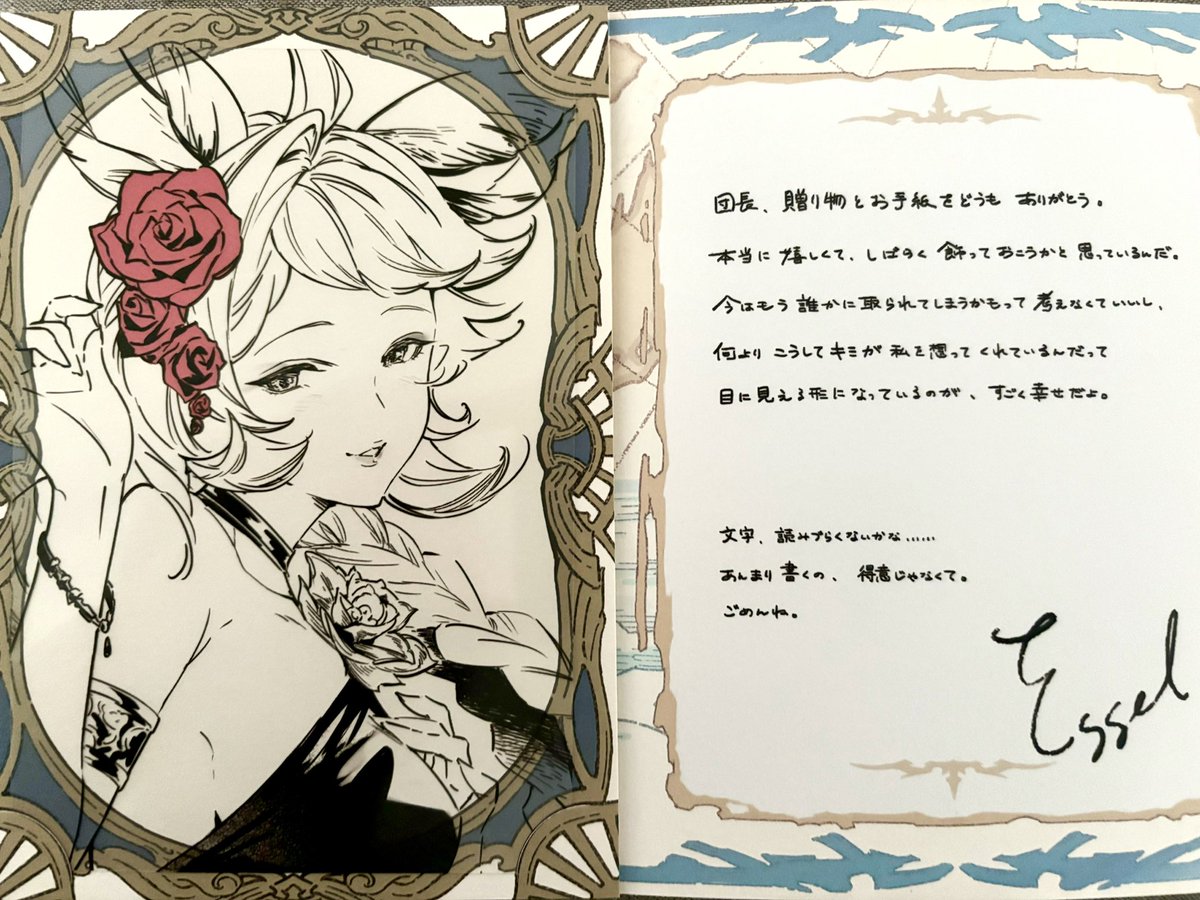 団長、贈り物とお手紙をどうも ありがとう。
本当に嬉しくて、しばらく飾っておこうかと思っているんだ。
今はもう誰かに取られてしまうかもって考えなくていいし、
何よりこうしてキミが私を想ってくれているんだって
目に見える形になっているのが、すごく幸せだよ。
文字、読みづらくないかな……
あんまり書くの、得意じゃなくて。
ごめんね。
Essel